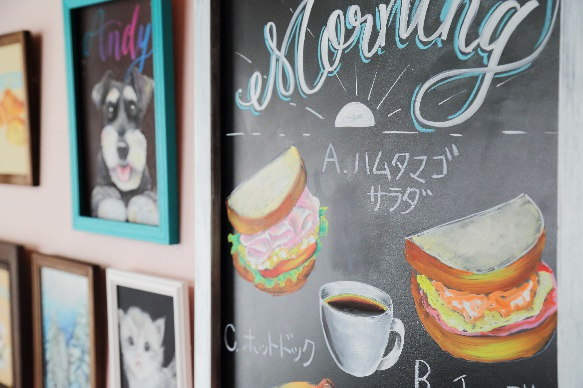 Andy
Morning
A.ハムタマゴ
サラダ
C.ホットドック
B.